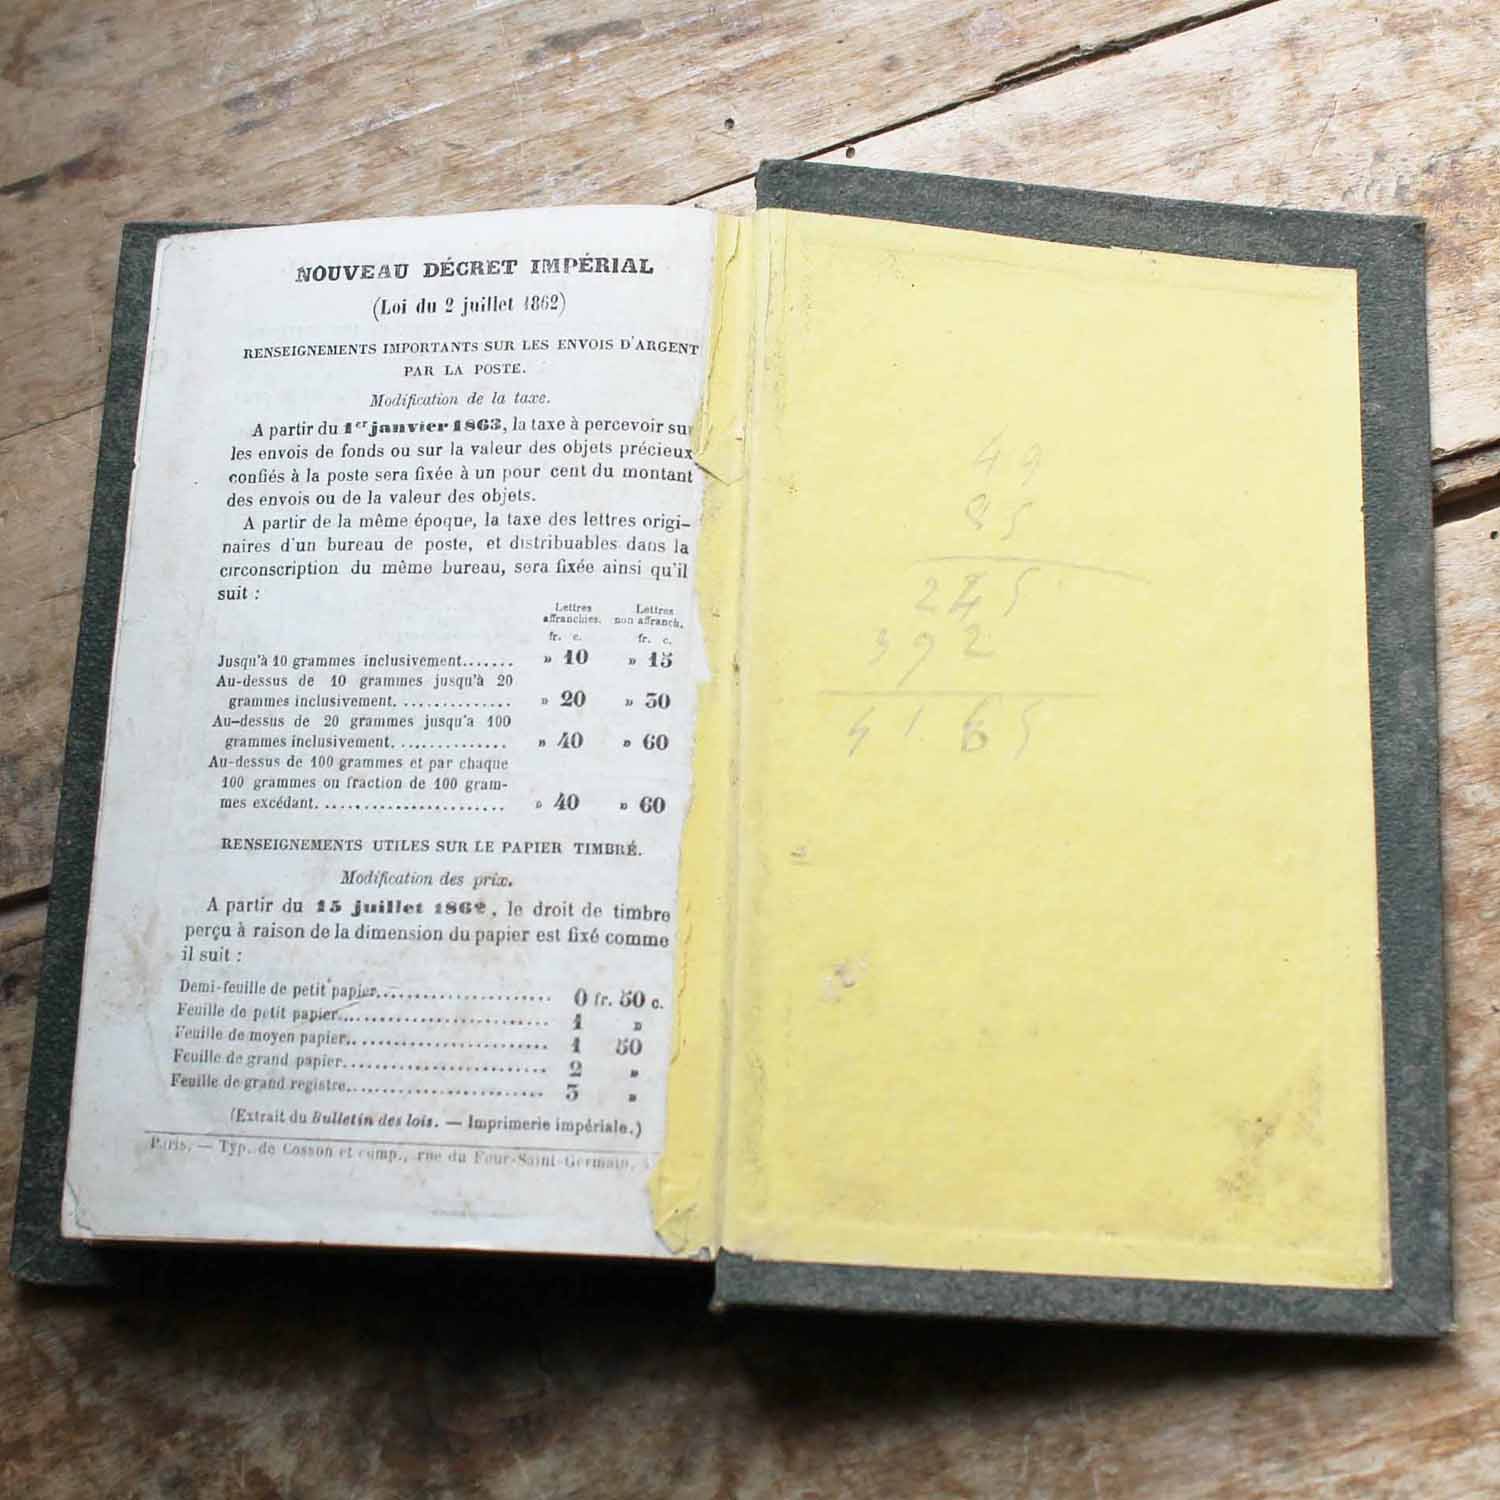 NOUVEAU DÉCRET IMPÉRIAL
(Loi du 2 juillet 1862)
RENSEIGNEMENTS IMPORTANTS SUR LES ENVOIS D'ARGENT
PAR LA POSTE.
Modification de la taxe.
A partir du 1er janvier 1863, la taxe à percevoir sur
les envois de fonds ou sur la valeur des objets précieux
confiés à la poste sera fixée à un pour cent du montant
des envois ou de la valeur des objets.
A partir de la même époque, la taxe des lettres origi-
naires d'un bureau de poste, et distribuables dans la
circonscription du même bureau, sera fixée ainsi qu'il
suit :
Lettres affranchies. Lettres non affranch.
fr. c. fr. c.
Jusqu'à 10 grammes inclusivement....... » 10 » 15
Au-dessus de 10 grammes jusqu'à 20
grammes inclusivement. .............. » 20 » 30
Au-dessus de 20 grammes jusqu'a 100
grammes inclusivement. .............. » 40 » 60
Au-dessus de 100 grammes et par chaque
100 grammes ou fraction de 100 gram-
mes excédant. ........................ » 40 » 60
RENSEIGNEMENTS UTILES SUR LE PAPIER TIMBRÉ.
Modification des prix.
A partir du 15 juillet 1862, le droit de timbre
perçu à raison de la dimension du papier est fixé comme
il suit :
Demi-feuille de petit papier........................ 0 fr. 50 c.
Feuille de petit papier............................. 1 »
Feuille de moyen papier............................ 1 50
Feuille de grand papier............................ 2 »
Feuille de grand registre........................... 3 »
(Extrait du Bulletin des lois. — Imprimerie impériale.)
Paris. — Typ. de Cosson et comp., rue du Four-Saint-Germain,
49
85
245
392
41.65